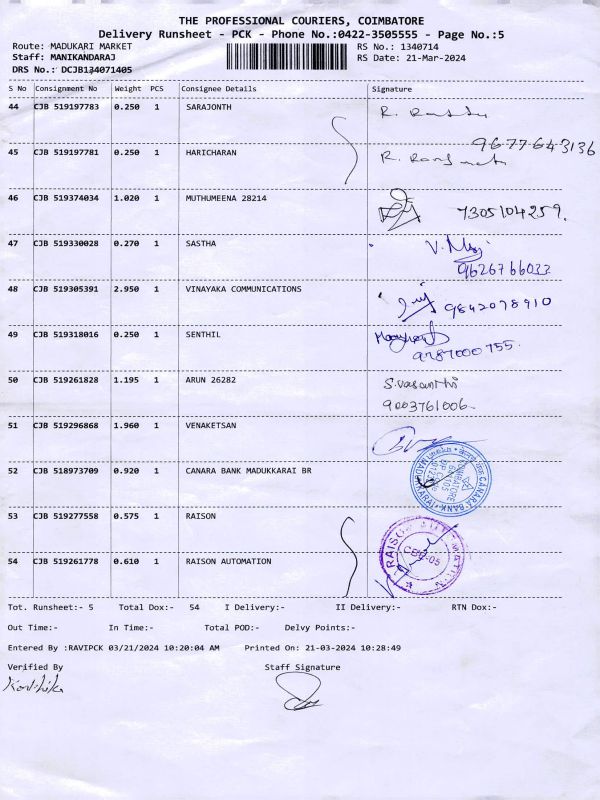 THE PROFESSIONAL COURIERS, COIMBATORE
Delivery Runsheet - PCK - Phone No.:0422-3505555 - Page No.:5
Route: MADUKARI MARKET RS No.: 1340714
Staff: MANIKANDARAJ RS Date: 21-Mar-2024
DRS No.: DCJB134071405
S No Consignment No Weight PCS Consignee Details Signature
44 CJB 519197783 0.250 1 SARAJONTH
9677643136
45 CJB 519197781 0.250 1 HARICHARAN
46 CJB 519374034 1.020 1 MUTHUMEENA 28214 7305104259.
47 CJB 519330028 0.270 1 SASTHA
9626766033
48 CJB 519305391 2.950 1 VINAYAKA COMMUNICATIONS 9842078910
49 CJB 519318016 0.250 1 SENTHIL
9787000755.
50 CJB 519261828 1.195 1 ARUN 26282 S.vasanthi
9003761006.
51 CJB 519296868 1.960 1 VENAKETSAN
52 CJB 518973709 0.920 1 CANARA BANK MADUKKARAI BR
CANARA BANK
53 CJB 519277558 0.575 1 RAISON
54 CJB 519261778 0.610 1 RAISON AUTOMATION
Tot. Runsheet:- 5 Total Dox:- 54 I Delivery:- II Delivery:- RTN Dox:-
Out Time:- In Time:- Total POD:- Delvy Points:-
Entered By :RAVIPCK 03/21/2024 10:20:04 AM Printed On: 21-03-2024 10:28:49
Verified By Staff Signature